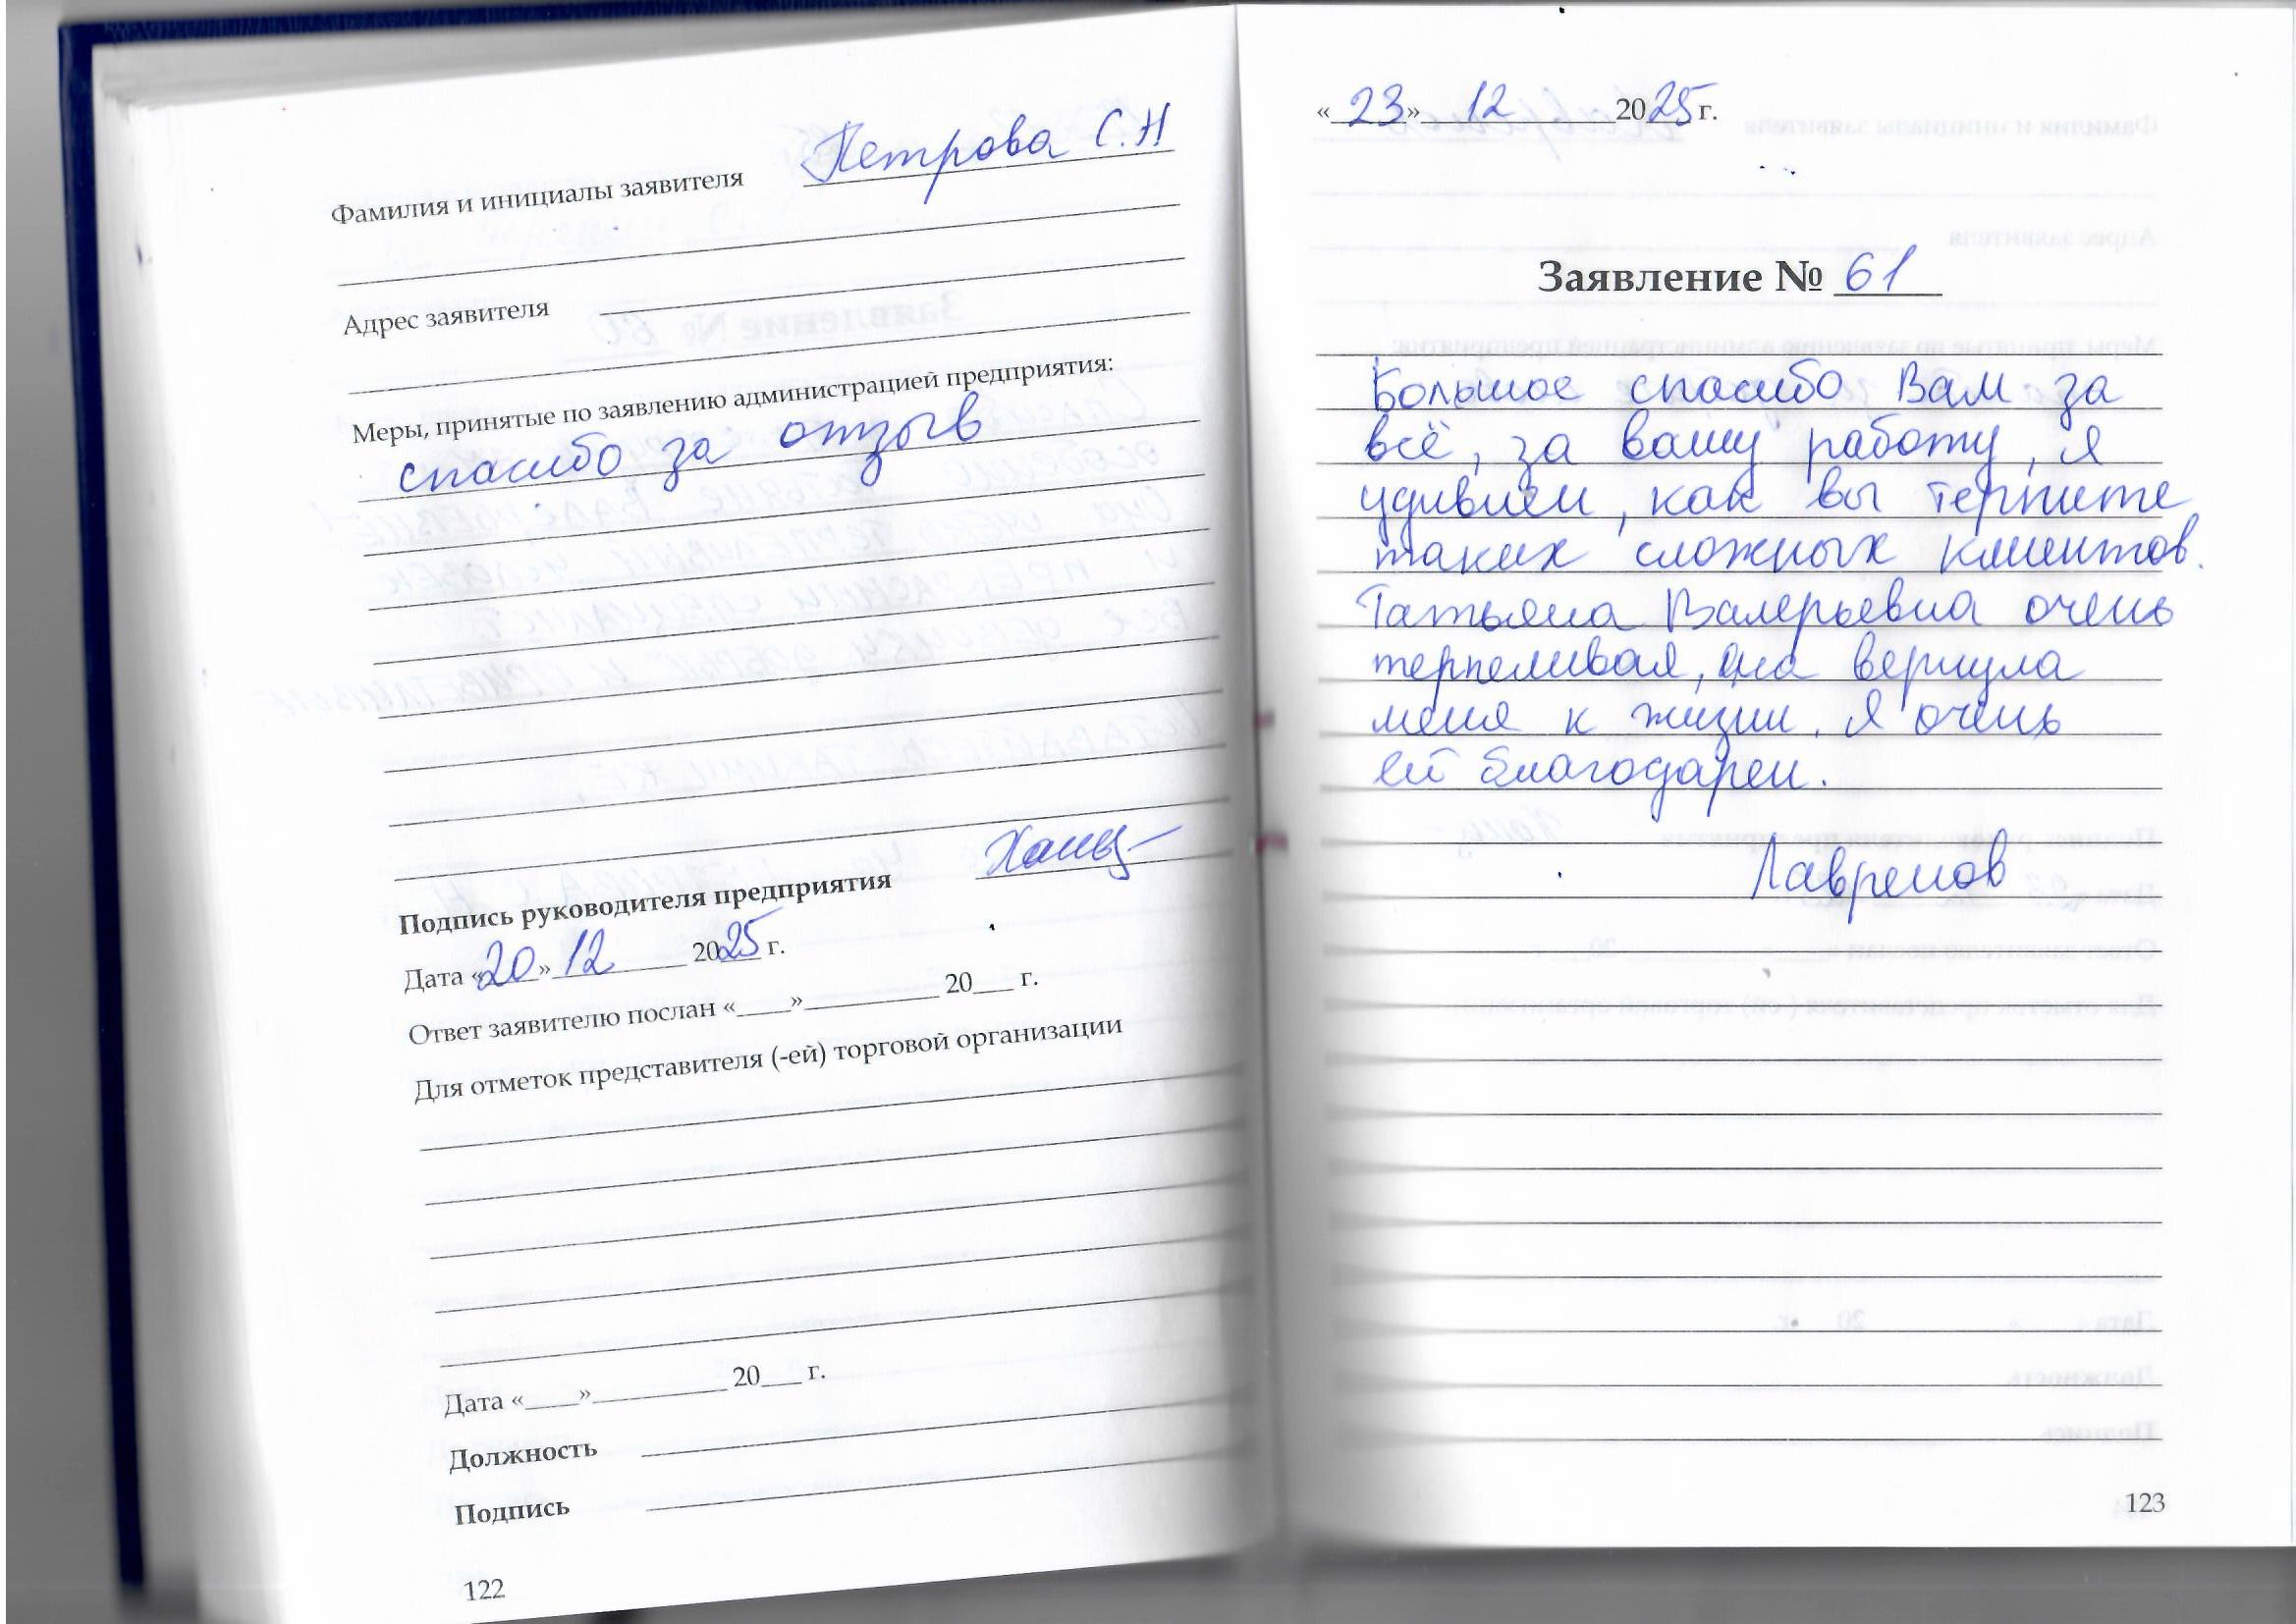 Фамилия и инициалы заявителя Петрова С.Н
Адрес заявителя
Меры, принятые по заявлению администрацией предприятия:
спасибо за отзыв
Подпись руководителя предприятия
Дата «20» 12 2025 г.
Ответ заявителю послан «____»__________ 20___ г.
Для отметок представителя (-ей) торговой организации
Дата «____»__________ 20___ г.
Должность
Подпись
122
«23» 12 2025 г.
Заявление № 61
Большое спасибо Вам за
всё, за вашу работу, я
удивлен, как вы терпите
таких сложных клиентов.
Татьяна Валерьевна очень
терпеливая, она вернула
меня к жизни. Я очень
ей благодарен.
Лавренов
123